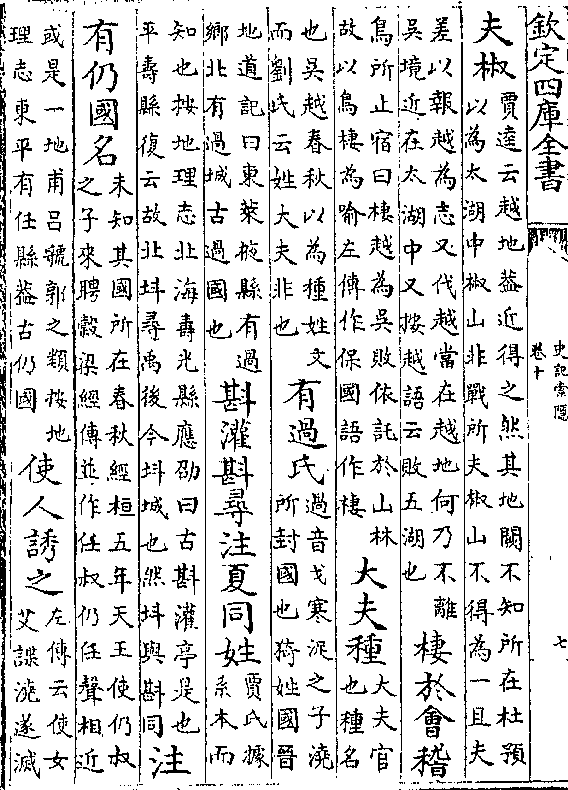 欽定四庫全書
史記索隱
卷十
七
夫椒
賈逵云越地葢近得之然其地闕不知所在杜預
以為太湖中椒山非戰所夫椒山不得為一且夫
差以報越為志又伐越當在越地何乃不離
吳境近在太湖中又按越語云敗五湖也
棲於會稽
鳥所止宿曰棲越為吳敗依託於山林
故以鳥棲為喻左傳作保國語作棲
大夫種
大夫官
也種名
也吳越春秋以為種姓文
而劉氏云姓大夫非也
有過氏
過音戈寒浞之子澆
所封國也猗姓國晉
地道記曰東萊掖縣有過
鄉北有過城古過國也
斟灌斟尋注夏同姓
賈氏據
系本而
知也按地理志北海壽光縣應劭曰古斟灌亭是也
平壽縣復云故北㪷尋禹後今㪷城也然㪷與斟同
注
有仍國名
未知其國所在春秋經桓五年天王使仍叔
之子來聘穀梁經傳並作任叔仍任聲相近
或是一地甫呂虢郭之類按地
理志東平有任縣葢古仍國
使人誘之
左傳云使女
艾諜澆遂滅